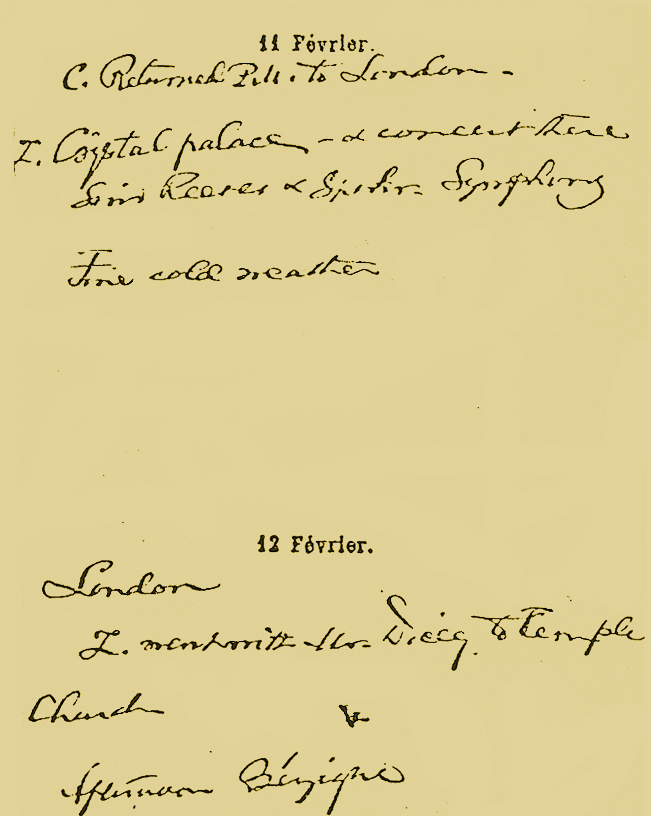 11 Février.
C. Returned to London -
I. Crystal palace - & concert there
Sims Reeves & Symphony
Fine cold weather
12 Février.
London
I. went with to Temple
Church
Afternoon Bézigue